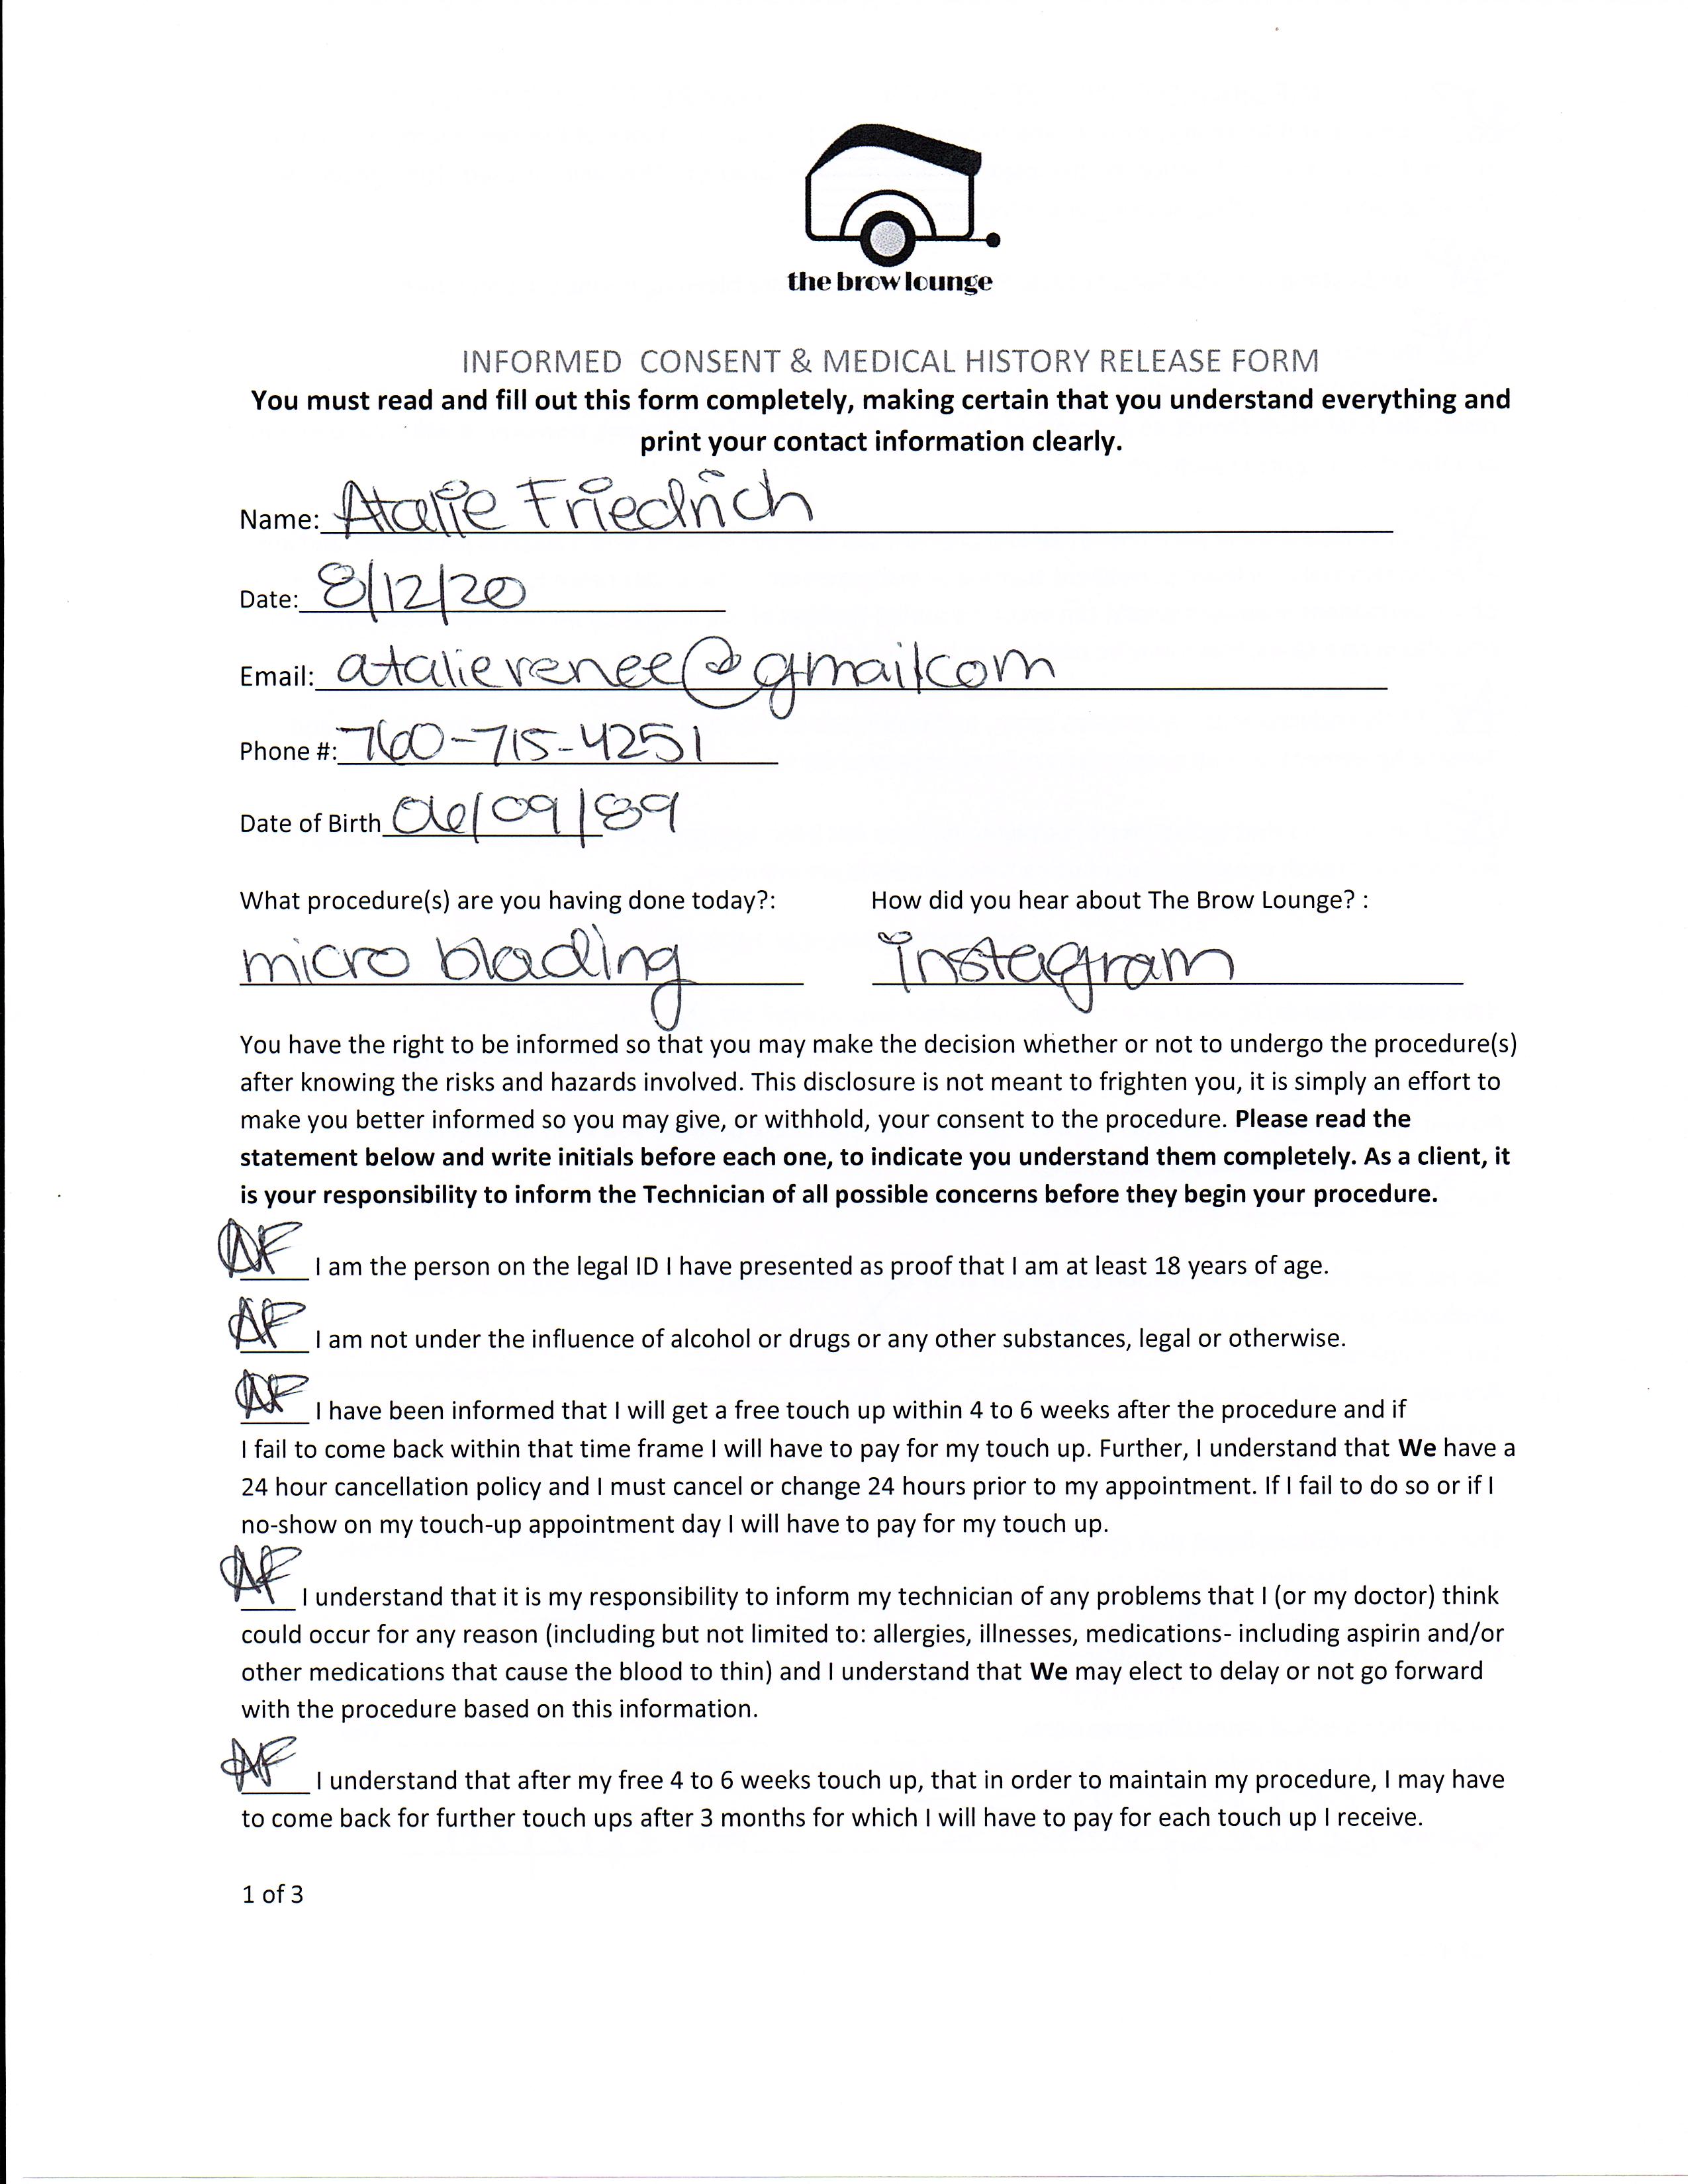 the brow lounge
INFORMED CONSENT & MEDICAL HISTORY RELEASE FORM
You must read and fill out this form completely, making certain that you understand everything and
print your contact information clearly.
Name: Atalie Friedrich
Date: 8/12/20
Email: atalierenee@gmail.com
Phone #: 760-715-4251
Date of Birth 06/09/89
What procedure(s) are you having done today?: How did you hear about The Brow Lounge? :
micro blading instagram
You have the right to be informed so that you may make the decision whether or not to undergo the procedure(s)
after knowing the risks and hazards involved. This disclosure is not meant to frighten you, it is simply an effort to
make you better informed so you may give, or withhold, your consent to the procedure. Please read the
statement below and write initials before each one, to indicate you understand them completely. As a client, it
is your responsibility to inform the Technician of all possible concerns before they begin your procedure.
AF I am the person on the legal ID I have presented as proof that I am at least 18 years of age.
AF I am not under the influence of alcohol or drugs or any other substances, legal or otherwise.
AF I have been informed that I will get a free touch up within 4 to 6 weeks after the procedure and if
I fail to come back within that time frame I will have to pay for my touch up. Further, I understand that We have a
24 hour cancellation policy and I must cancel or change 24 hours prior to my appointment. If I fail to do so or if I
no-show on my touch-up appointment day I will have to pay for my touch up.
AF I understand that it is my responsibility to inform my technician of any problems that I (or my doctor) think
could occur for any reason (including but not limited to: allergies, illnesses, medications- including aspirin and/or
other medications that cause the blood to thin) and I understand that We may elect to delay or not go forward
with the procedure based on this information.
AF I understand that after my free 4 to 6 weeks touch up, that in order to maintain my procedure, I may have
to come back for further touch ups after 3 months for which I will have to pay for each touch up I receive.
1 of 3